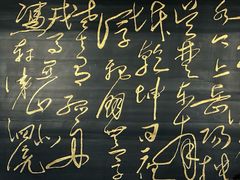 水今上岳陽樓
吳楚東南
坼乾坤日夜
浮親朋無一字
老病有孤舟
戎馬關山北
憑軒涕泗流